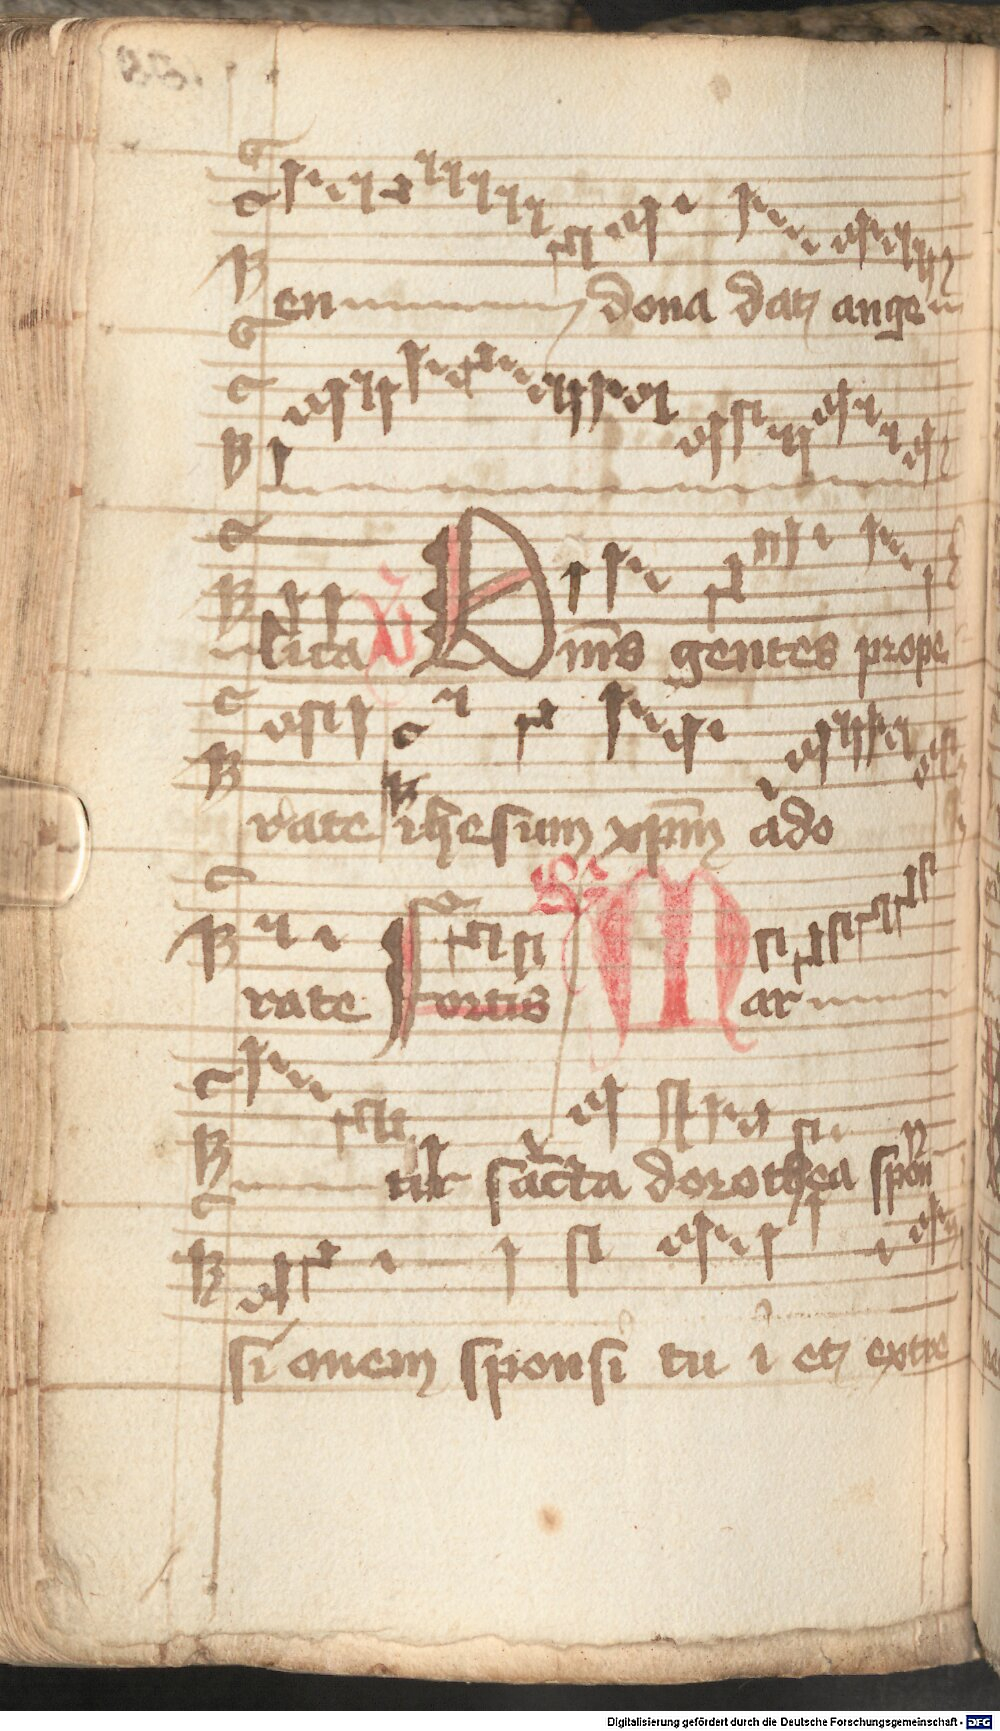 en dona dat ange
lica V Om̄s gentes prope
rate ih̄esum xp̄m ado
rate fortis R Mar
tir sāc̄ta dorothea spon
si onem sponsi tu i et extre
Digitalisierung gefördert durch die Deutsche Forschungsgemeinschaft - DFG